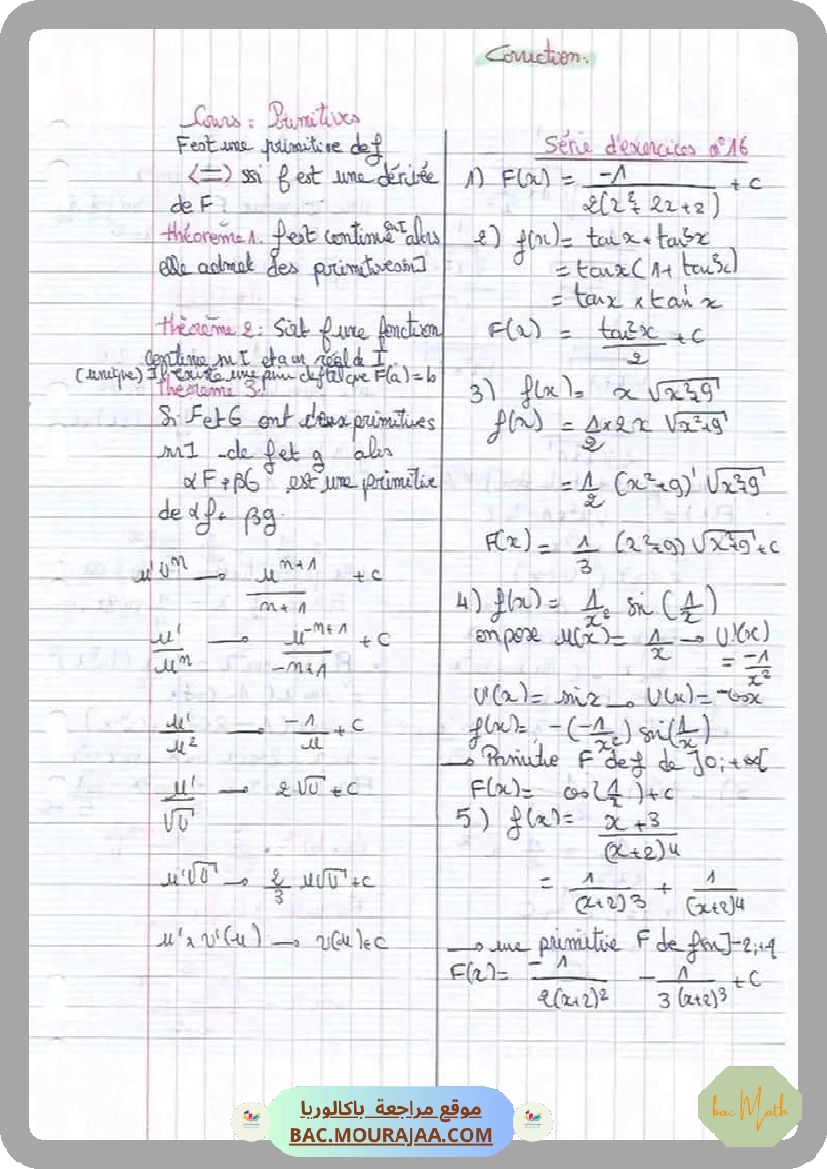 Correction.
Cours : Primitives
F est une primitive de f
<=> ssi f est une dérivée
de F
théorème 1. f est continue sur I alors
elle admet des primitives sur I
théorème 2 : Soit f une fonction
continue sur I et a un réel de I
(unique) Il existe une prim de f tel que F(a) = b
théorème 3 :
Si F et G ont deux primitives
sur I de f et g alors
αF + βG est une primitive
de αf + βg.
u'uⁿ → uⁿ⁺¹/(n+1) + c
u'/uⁿ → u⁻ⁿ⁺¹/(-n+1) + c
u'/u² → -1/u + c
u'/√u → 2√u + c
u'√u → 2/3 u√u + c
u' x v'(u) → v(u) + c
Série d'exercices n°16
1) F(x) = -1/(2(x² + 2x + 2)) + c
2) f(x) = tan x + tan³x
= tan x (1 + tan²x)
= tan x × tan' x
F(x) = tan²x/2 + c
3) f(x) = x √(x²+9)
f(x) = 1/2 × 2x √(x²+9)
= 1/2 (x²+9)' √(x²+9)
F(x) = 1/3 (x²+9) √(x²+9) + c
4) f(x) = 1/x² sin (1/x)
on pose u(x) = 1/x → U'(x)
= -1/x²
V'(x) = sin x → V(x) = -cos x
f(x) = -(-1/x²) sin(1/x)
→ Primitive F de f de ]0 ; +∞[
F(x) = cos(1/x) + c
5) f(x) = (x+3)/(x+2)4
= 1/(x+2)3 + 1/(x+2)4
→ une primitive F de f sur ]-2;+
F(x) = -1/(2(x+2)²) - 1/(3(x+2)³) + c
موقع مراجعة باكالوريا
BAC.MOURAJAA.COM
bac Math